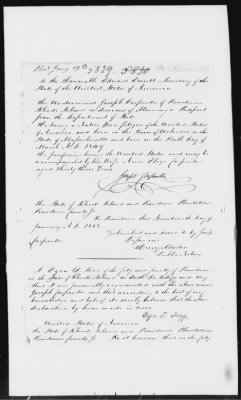 Recd Jany 19th 5829. 5830
To the Honorable Edward Everett Secretary of the
State of the United States of America
The undersigned Joseph Carpenter of Providence
Rhode Island is desirous of obtaining a Passport
from the Department of State
He being a Native Free Citizen of the United States
of America and born in the Town of
State of Massachusetts and born on the Tenth day of
March A.D. 1819
He purposes leaving the United States and may be
accompanied by his Wife Ann Eliza Carpenter
aged thirty three Years
Joseph Carpenter
The State of Rhode Island and Providence Plantations
Providence County Sc
In Providence this Seventeenth day of
January A.D. 1853
Subscribed and sworn to by Joseph
Carpenter
Before me
Public Notary
I Ezra D. of the City and County of Providence
in the State of Rhode Island on Oath do testify and say
that I am personally acquainted with the above named
Joseph Carpenter and that according to the best of my
knowledge and belief I verily believe that the above
declaration by him made is true
Ezra D.
United States of America
The State of Rhode Island and Providence Plantations
Providence County Sc. Be it known that on the